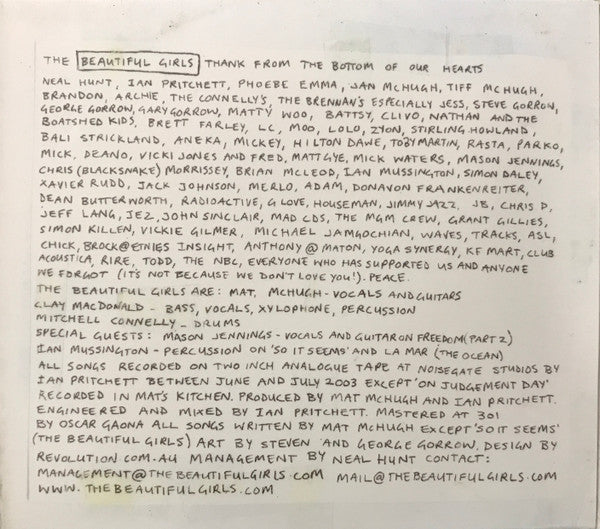 THE BEAUTIFUL GIRLS THANK FROM THE BOTTOM OF OUR HEARTS
NEAL HUNT, IAN PRITCHETT, PHOEBE EMMA, JAN MCHUGH, TIFF MCHUGH,
BRANDON, ARCHIE, THE CONNELLY'S, THE BRENNAN'S ESPECIALLY JESS, STEVE GORROW,
GEORGE GORROW, GARY GORROW, MATTY WOO, BATTSY, CLIVO, NATHAN AND THE
BOATSHED KIDS, BRETT FARLEY, LC, MOO, LOLO, ZYON, STIRLING HOWLAND,
BALI STRICKLAND, ANEKA, MICKEY, HILTON DAWE, TOBY MARTIN, RASTA, PARKO,
MICK, DEANO, VICKI JONES AND FRED, MATT GYE, MICK WATERS, MASON JENNINGS,
CHRIS (BLACKSNAKE) MORRISSEY, BRIAN MCLEOD, IAN MUSSINGTON, SIMON DALEY,
XAVIER RUDD, JACK JOHNSON, MERLO, ADAM, DONAVON FRANKENREITER,
DEAN BUTTERWORTH, RADIOACTIVE, G LOVE, HOUSEMAN, JIMMY JAZZ, JB, CHRIS D,
JEFF LANG, JEZ, JOHN SINCLAIR, MAD CDS, THE MGM CREW, GRANT GILLIES,
SIMON KILLEN, VICKIE GILMER, MICHAEL JAMGOCHIAN, WAVES, TRACKS, ASL,
CHICK, BROCK@ETNIES INSIGHT, ANTHONY @ MATON, YOGA SYNERGY, KF MART, CLUB
ACOUSTICA, RIRE, TODD, THE NBC, EVERYONE WHO HAS SUPPORTED US AND ANYONE
WE FORGOT (IT'S NOT BECAUSE WE DON'T LOVE YOU!). PEACE.
THE BEAUTIFUL GIRLS ARE: MAT. MCHUGH - VOCALS AND GUITARS
CLAY MACDONALD - BASS, VOCALS, XYLOPHONE, PERCUSSION
MITCHELL CONNELLY - DRUMS
SPECIAL GUESTS: MASON JENNINGS - VOCALS AND GUITAR ON FREEDOM (PART 2)
IAN MUSSINGTON - PERCUSSION ON 'SO IT SEEMS' AND LA MAR (THE OCEAN)
ALL SONGS RECORDED ON TWO INCH ANALOGUE TAPE AT NOISEGATE STUDIOS BY
IAN PRITCHETT BETWEEN JUNE AND JULY 2003 EXCEPT 'ON JUDGEMENT DAY'
RECORDED IN MAT'S KITCHEN. PRODUCED BY MAT MCHUGH AND IAN PRITCHETT.
ENGINEERED AND MIXED BY IAN PRITCHETT. MASTERED AT 301
BY OSCAR GAONA ALL SONGS WRITTEN BY MAT MCHUGH EXCEPT 'SO IT SEEMS'
(THE BEAUTIFUL GIRLS) ART BY STEVEN AND GEORGE GORROW. DESIGN BY
REVOLUTION.COM.AU MANAGEMENT BY NEAL HUNT CONTACT:
MANAGEMENT@THEBEAUTIFULGIRLS.COM MAIL@THEBEAUTIFULGIRLS.COM
WWW.THEBEAUTIFULGIRLS.COM